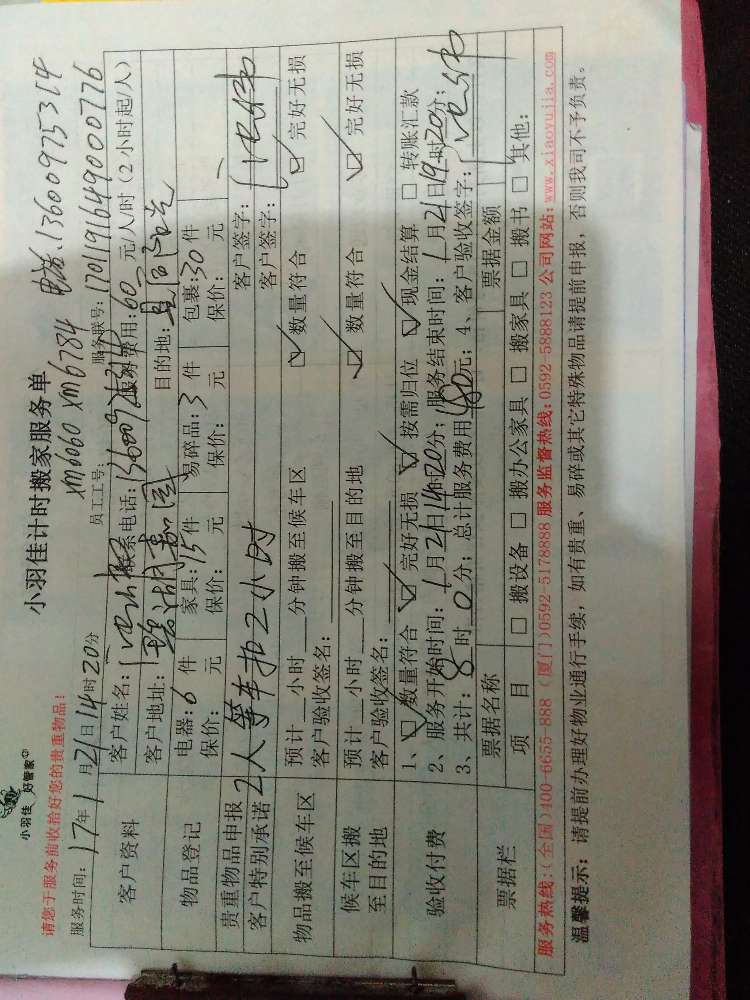 小羽佳 好管家
小羽佳计时搬家服务单
请您于服务前收拾好您的贵重物品!
xm6060 xm6784 电话.13600975314
服务时间:17年1月21日14时20分 员工工号: 服务联号:1701191649000776
客户资料
客户姓名: 联系电话: 服务费用:60元/人/时(2小时起/人)
客户地址: 目的地:
物品登记
电器:6件 家具:15件 易碎品:3件 包裹:30件
保价: 元 保价: 元 保价: 元 保价: 元
贵重物品申报 客户签字:
客户特别承诺 2人等车扣2小时 客户签字:
物品搬至候车区
预计___小时___分钟搬至候车区 数量符合 完好无损
客户验收签名:
候车区搬至目的地
预计___小时___分钟搬至目的地 数量符合 完好无损
客户验收签名:
验收付费
1、数量符合 完好无损 按需归位 现金结算 转账汇款
2、服务开始时间:1月21日14时20分;服务结束时间:1月21日19时20分;
3、共计:8时0分;总计服务费用480元;4、客户验收签字:
票据栏
票据名称 票据金额
项 目 搬设备 搬办公家具 搬家具 搬书 其他:
服务热线:(全国)400-6655-888 (厦门)0592-5178888 服务监督热线:0592-5888123 公司网站:www.xiaoyujia.com
温馨提示:请提前办理好物业通行手续,如有贵重、易碎或其它特殊物品请提前申报,否则我司不予负责。